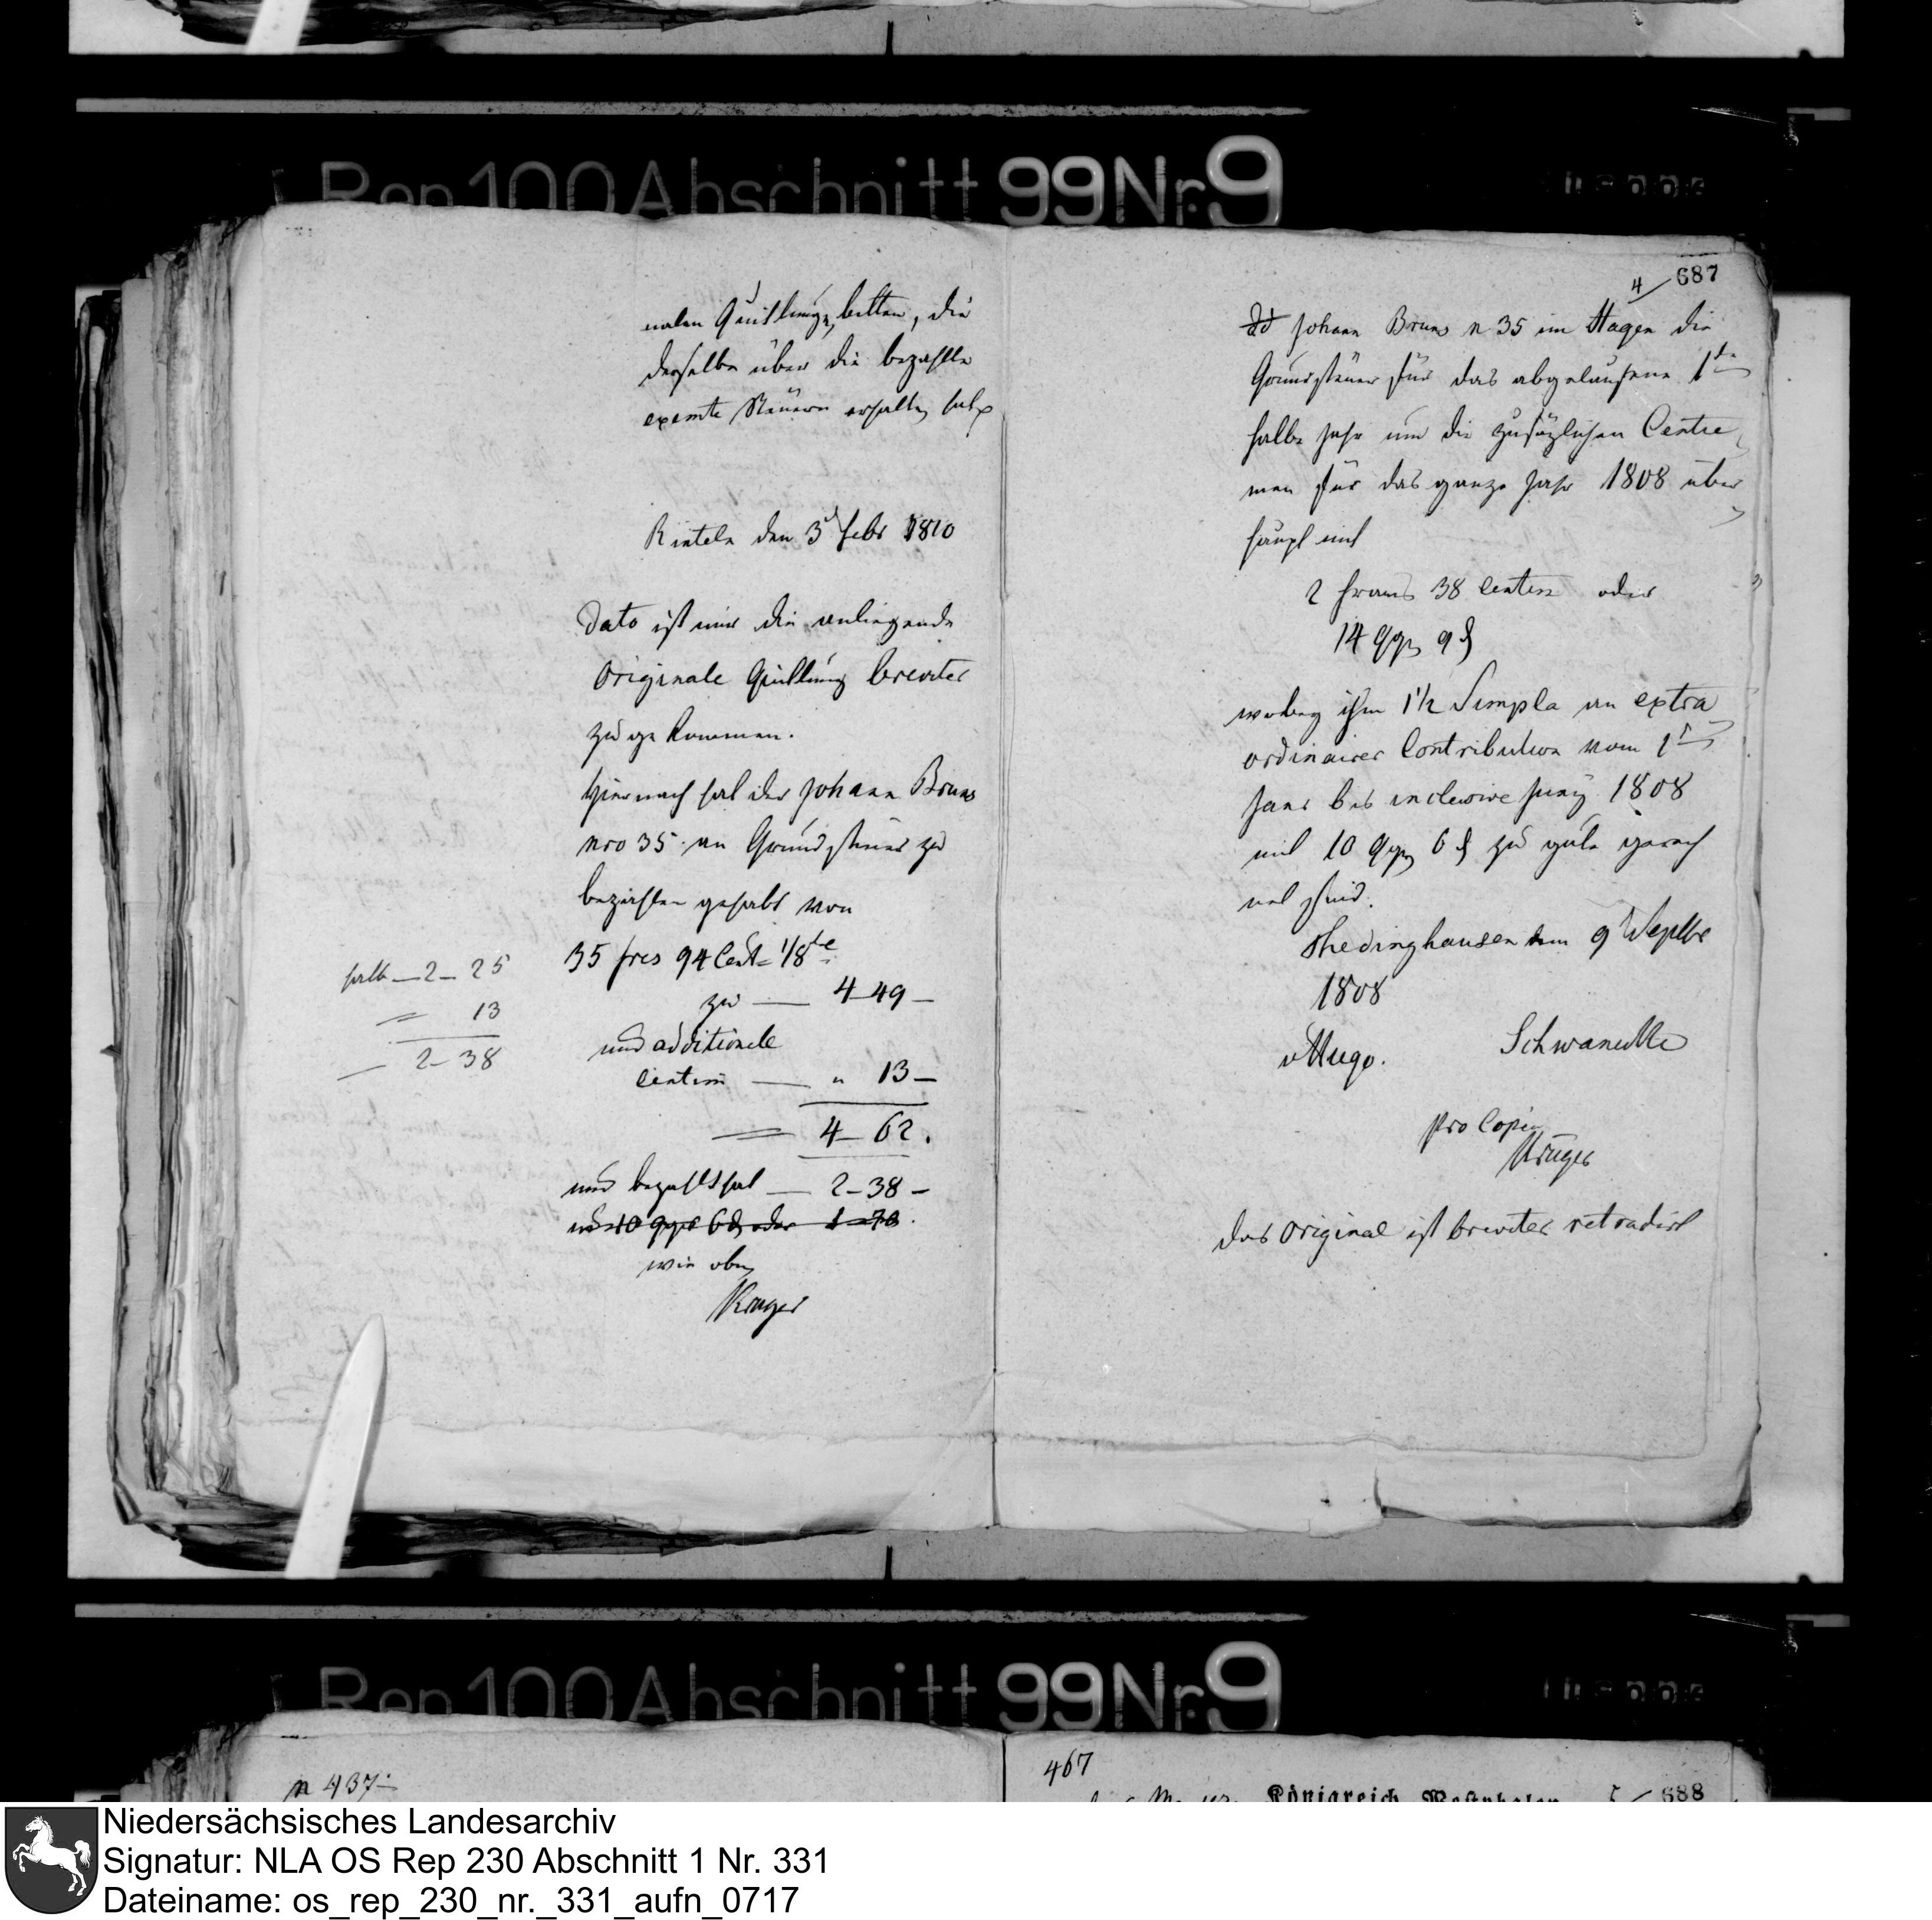 Rep 100 Abschnitt 99 Nr. 9
nalen Quittung bitten, die
derselbe über die bezahlte
exemte Steuern erhalten habe
Rinteln den 3 Febr 1810
Dato ist mir die anliegende
Originale Quittung brevater
zu gekommen.
Hiernach hat der Johann Bruns
nro 35 an Grundsteuer zu
bezahlen gehabt von
35 frcs 94 Cent = 1/8te
zu — 4-49 —
halb — 2 - 25
= 13
— 2 - 38
und additionele
Centim — " 13 —
= 4 - 62.
und bezahlt hat — 2 - 38 —
10 ggr 6 d oder 1-70.
wie oben
Kruger
4 687
Johann Bruns n 35 im Hagen die
Grundsteuer für das abgelaufene 1te
halbe Jahr und die zusäzlichen Centie
men für das ganze Jahr 1808 über
haupt mit
2 francs 38 Centim oder
14 ggr 9 d
wobey ihm 1 1/2 Simpla an extra
ordinairer Contribution vom 1t
Janr bis inclusive Juny 1808
mit 10 ggr 6 d zu gute gerech
net sind.
Thedinghausen den 9 Septbr
1808
vHugo. Schwaneck
pro Copia
Krüger
Das Original ist brevater retradirt
Rep 100 Abschnitt 99 Nr. 9
n 437
467
Königreich Westphalen 5 688
Niedersächsisches Landesarchiv
Signatur: NLA OS Rep 230 Abschnitt 1 Nr. 331
Dateiname: os_rep_230_nr._331_aufn_0717